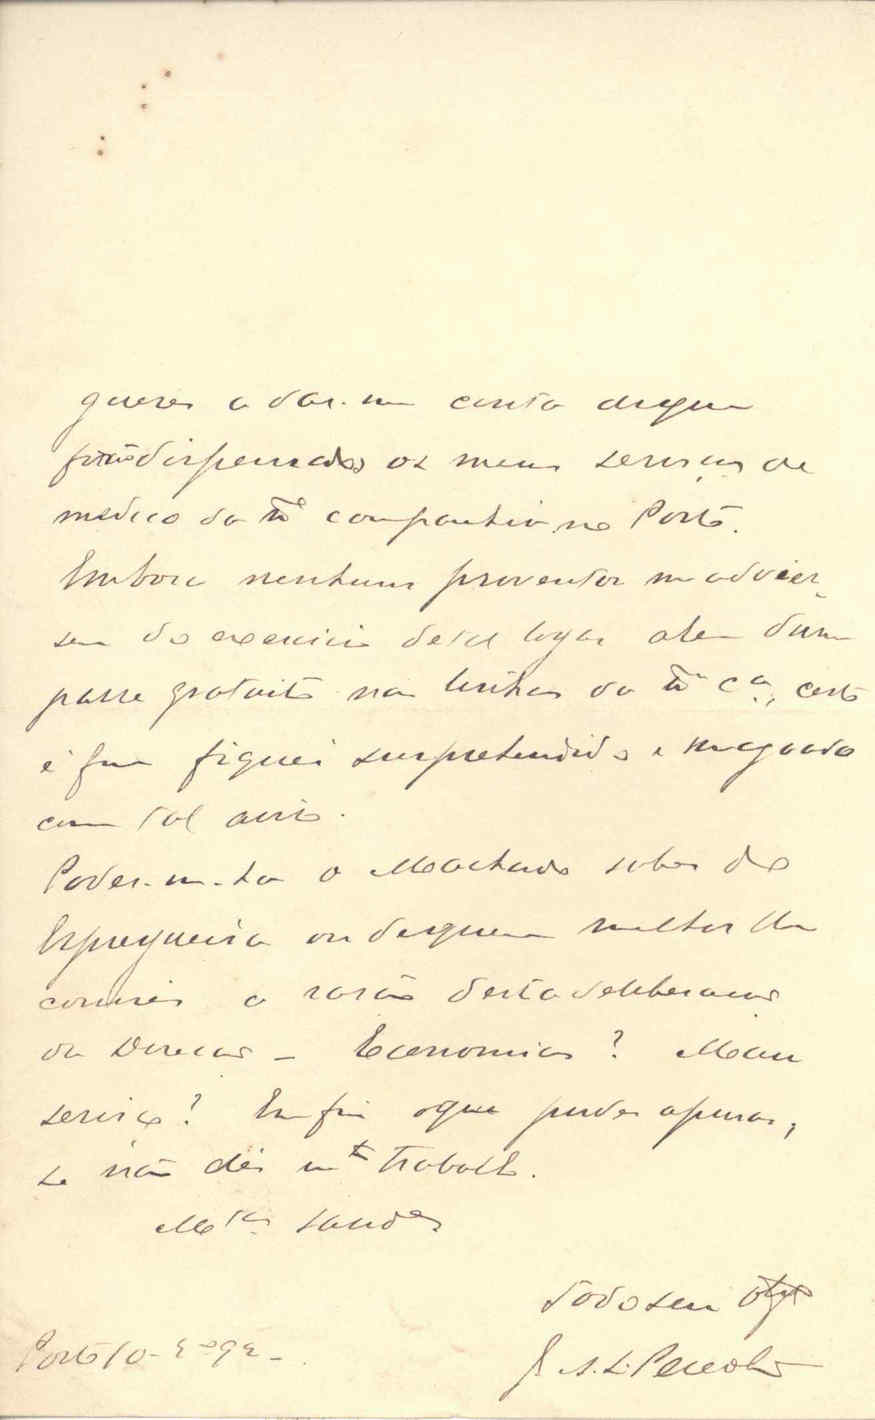 queres a dar-me conta de que
foram dispensados os meus serviços de
medico da tª companhia no Porto.
Embora nenhuns proventos me advies-
sem do exercicio deste logar alem dum
passe gratuito nas linhas da tª Cª, certo
é que fiquei surprehendido e magoado
com tal aviso.
Poder-me-ha o Machado saber do
Espregueira ou de quem melhor
a rasão desta deliberação
da Direcção – Economias? Mau
serviço? Em fim o que poder apurar,
se não dér mto trabalho.
Mtas saudes
Todo seu
Porto 10-